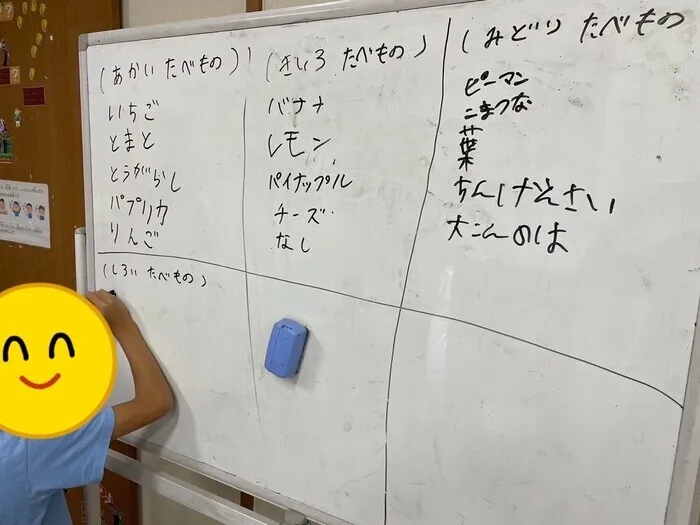 (あかい たべもの)
いちご
とまと
とうがらし
パプリカ
りんご
(きいろ たべもの)
バナナ
レモン
パイナップル
チーズ
なし
(みどり たべもの
ピーマン
こまつな
葉
ちんげんさい
大こんのは
(しろい たべもの)